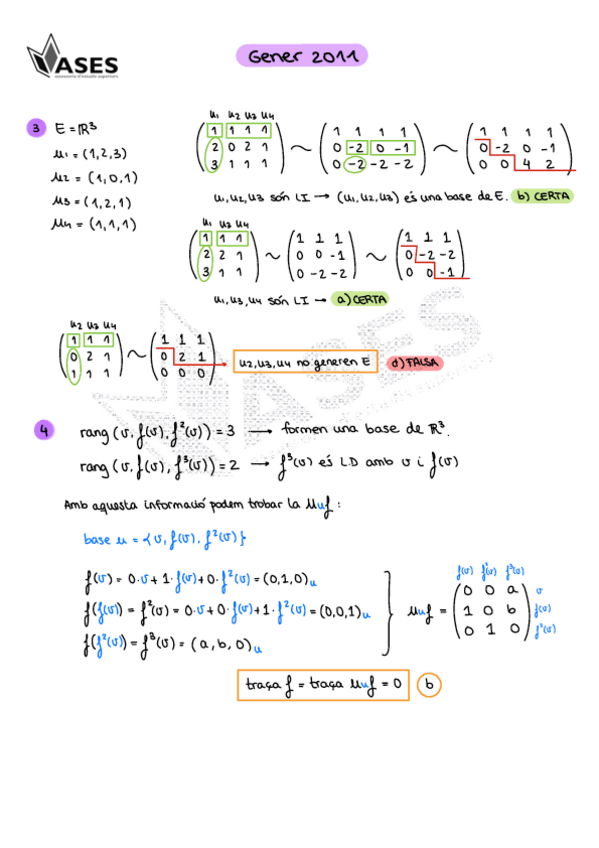 ASES
Gener 2011
3 E = ℝ³
u1 = (1,2,3)
u2 = (1,0,1)
u3 = (1,2,1)
u4 = (1,1,1)
u1 u2 u3 u4
1 1 1 1
2 0 2 1
3 1 1 1
~
1 1 1 1
0 -2 0 -1
0 -2 -2 -2
~
1 1 1 1
0 -2 0 -1
0 0 4 2
u1, u2, u3 són LI → (u1, u2, u3) és una base de E. b) CERTA
u1 u3 u4
1 1 1
2 2 1
3 1 1
~
1 1 1
0 0 -1
0 -2 -2
~
1 1 1
0 -2 -2
0 0 -1
u1, u3, u4 són LI → a) CERTA
u2 u3 u4
1 1 1
0 2 1
1 1 1
~
1 1 1
0 2 1
0 0 0
u2, u3, u4 no generen E d) FALSA
4 rang (v, f(v), f²(v)) = 3 → formen una base de ℝ³.
rang (v, f(v), f³(v)) = 2 → f³(v) és LD amb v i f(v)
Amb aquesta informació podem trobar la Muf :
base u = {v, f(v), f²(v)}
f(v) = 0·v + 1·f(v) + 0·f²(v) = (0,1,0)u
f(f(v)) = f²(v) = 0·v + 0·f(v) + 1·f²(v) = (0,0,1)u
f(f²(v)) = f³(v) = (a, b, 0)u
f(v) f²(v) f³(v)
Muf =
0 0 a v
1 0 b f(v)
0 1 0 f²(v)
traça f = traça Muf = 0 b